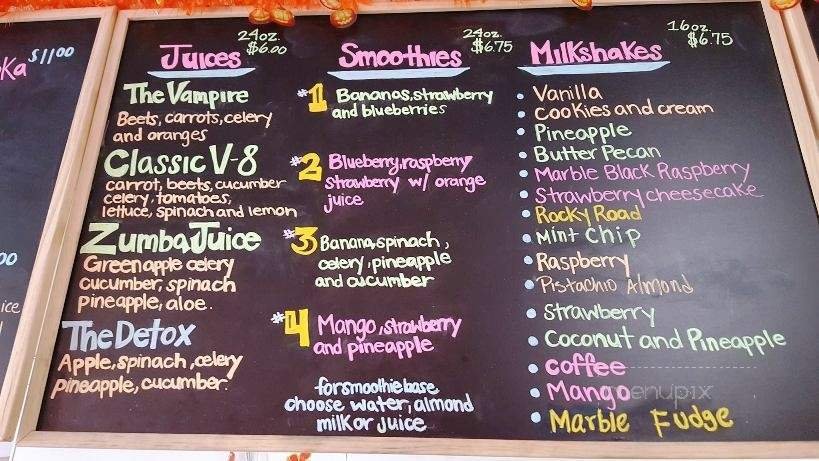 Ka $11.00
00
ice
Juices 24oz. $6.00
The Vampire
Beets, carrots, celery
and oranges
Classic V-8
carrot, beets, cucumber
celery, tomatoes,
lettuce, spinach and lemon
Zumba Juice
Green apple celery
cucumber, spinach
pineapple, aloe.
The Detox
Apple, spinach, celery
pineapple, cucumber.
Smoothies 24oz. $6.75
#1 Bananas, strawberry
and blueberries
#2 Blueberry, raspberry
strawberry w/ orange
juice
#3 Banana, spinach,
celery, pineapple
and cucumber
#4 Mango, strawberry
and pineapple
for smoothie base
choose water, almond
milk or juice
Milkshakes 16oz. $6.75
• Vanilla
• Cookies and cream
• Pineapple
• Butter Pecan
• Marble Black Raspberry
• Strawberry cheesecake
• Rocky Road
• Mint Chip
• Raspberry
• Pistachio Almond
• Strawberry
• Coconut and Pineapple
• coffee
• Mango
• Marble Fudge
menupix